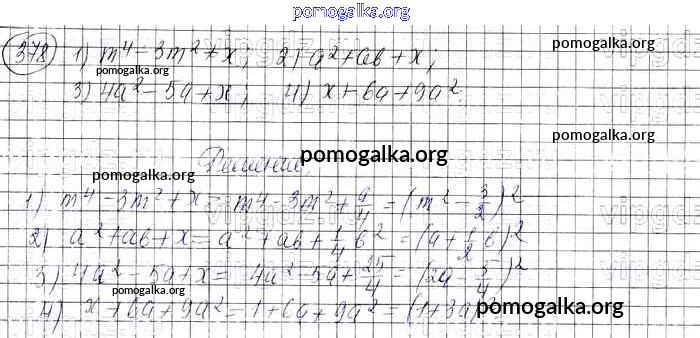 pomogalka.org
378 1) m⁴ - 3m² + x; 2) a² + ab + x;
pomogalka.org pomogalka.org
3) 4a² - 5a + x; 4) x + 6a + 9a².
pomogalka.org
Решение.
pomogalka.org
pomogalka.org
1) m⁴ - 3m² + x = m⁴ - 3m² + 9/4 = (m² - 3/2)²
2) a² + ab + x = a² + ab + 1/4 b² = (a + 1/2 b)²
3) 4a² - 5a + x = 4a² - 5a + 25/4 = (2a - 5/4)²
pomogalka.org
4) x + 6a + 9a² = 1 + 6a + 9a² = (1 + 3a)²
pomogalka.org